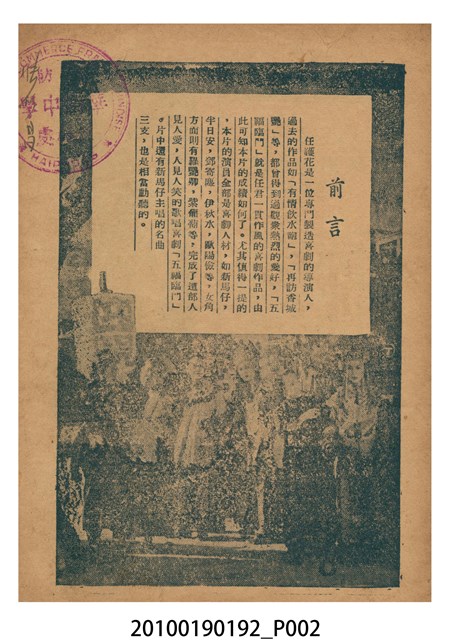 前言
任護花是一位專門製造喜劇的導演人，
過去的作品如「有情飲水飽」，「再訪香城
艷」等，都曾得到過觀衆熱烈的愛好，「五
福臨門」就是任君一貫作風的喜劇作品，由
此可知本片的成績如何了。尤其值得一提的
，本片的演員全部是喜劇人材，如新馬仔，
半日安，鄧寄塵，伊秋水，歐陽儉等，女角
方面則有羅艷卿，紫蘭女等，完成了這部人
見人愛，人見人笑的歌唱喜劇「五福臨門」
。片中還有新馬仔主唱的名曲
三支，也是相當動聽的。
中學
20100190192_P002